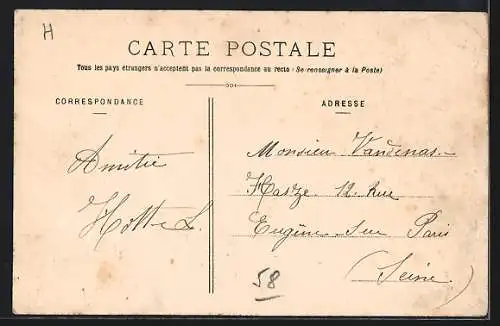 H
CARTE POSTALE
Tous les pays étrangers n'acceptent pas la correspondance au recto (Se renseigner à la Poste)
CORRESPONDANCE
ADRESSE
Amitié
Hotte L.
Monsieur
12 Rue
Eugène Sue Paris
(Seine)
58